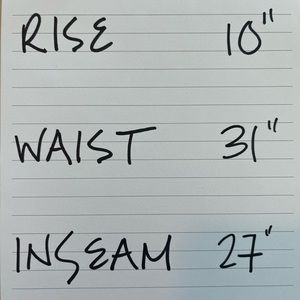 RISE 10"
WAIST 31"
INSEAM 27"